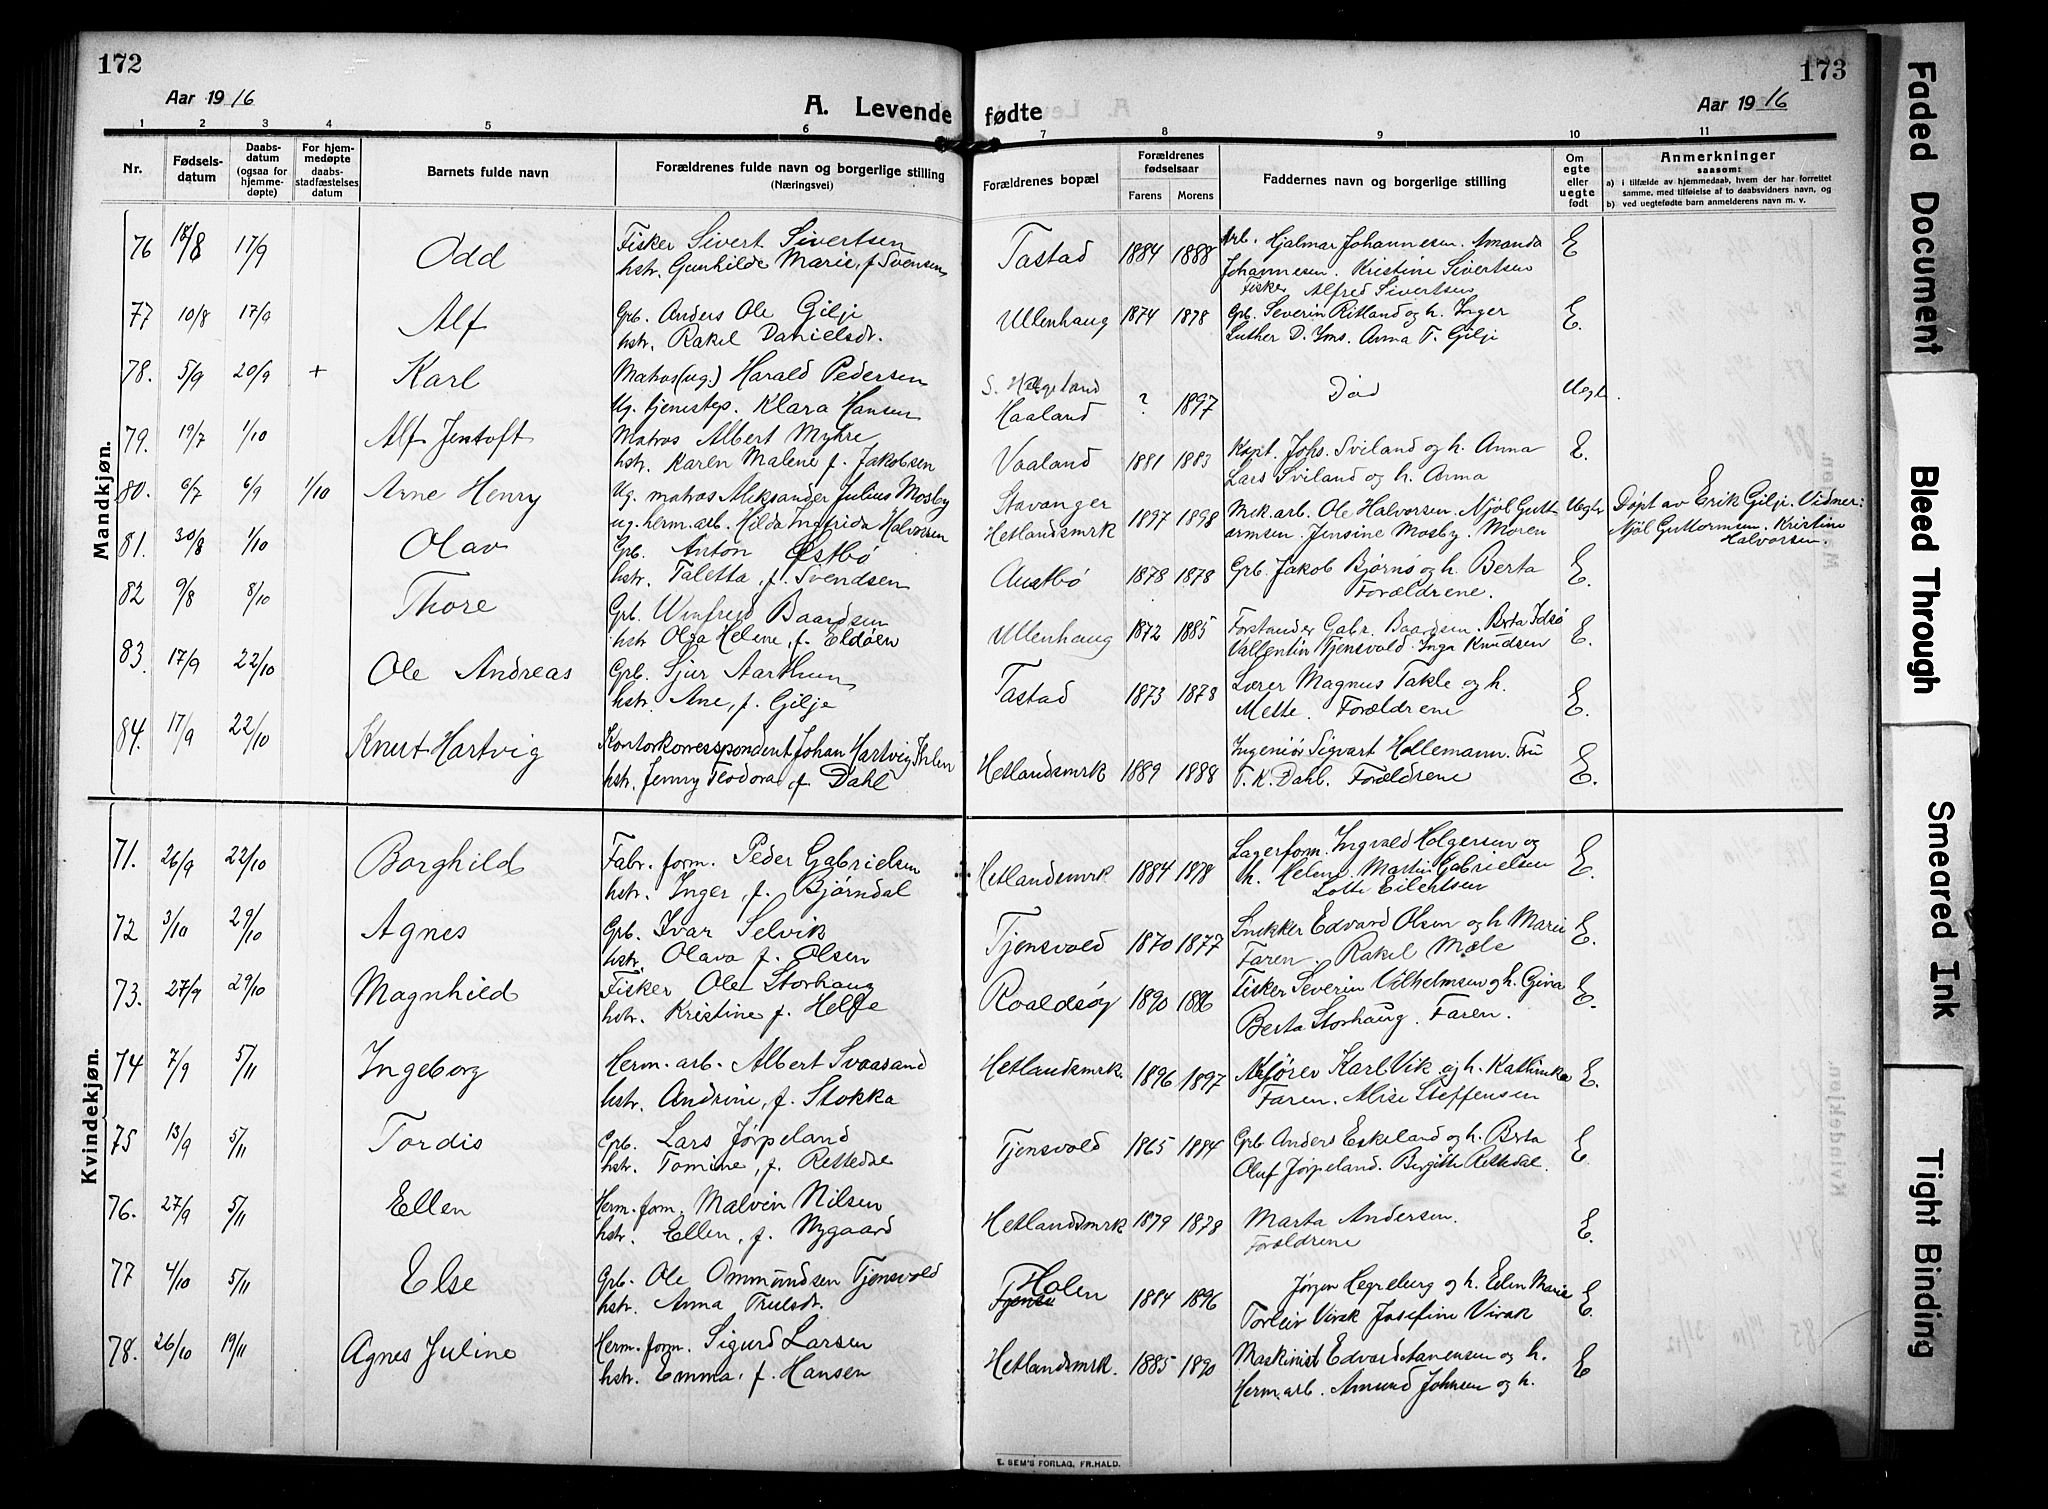 172
Aar 1916
A. Levende
1 2 3 4 5 6
Nr.
Fødsels-
datum
Daabs-
datum
(ogsaa for
hjemme-
døpte)
For hjem-
medøpte
daabs-
stadfæstelses
datum
Barnets fulde navn
Forældrenes fulde navn og borgerlige stilling
(Næringsvei)
Mandkjøn.
76 18/8 17/9 Odd Fisker Sivert Sivertsen
hstr. Gunhilde Marie, f. Svensen
77 10/8 17/9 Alf Grb. Anders Ole Gilje
hstr. Rakel Danielsdt.
78. 5/9 20/9 + Karl Matros (ug.) Harald Pedersen
Ug. tjenestep. Klara Hansen
79. 19/7 1/10 Alf Jentoft Matros Albert Myhre
hstr. Karen Malene f. Jakobsen
80. 6/7 6/9 1/10 Arne Henry Ug. matros Aleksander Julius Mosby
ug. herm. arb. Hilda Ingfrida Halvorsen
81. 30/8 1/10 Olav Grb. Anton Østbø
hstr. Taletta, f. Svendsen
82 9/8 8/10 Thore Grb. Winfred Baardsen
hstr Olga Helene, f. Eldøen
83. 17/9 22/10 Ole Andreas Grb. Sjur Aarthun
hstr. Ane, f. Gilje
84. 17/9 22/10 Knut Hartvig Kontorkorrespondent Johan Hartvig Ihlen
hstr. Jenny Teodora f. Dahl
Kvindekjøn.
71. 26/9 22/10 Borghild Fabr. form. Peder Gabrielsen
hstr. Inger, f. Bjørndal
72 3/10 29/10 Agnes Grb. Ivar Selvik
hstr. Olava f. Olsen
73. 27/9 29/10 Magnhild Fisker Ole Storhaug
hstr. Kristine f. Helle
74 7/9 5/11 Ingeborg Herm. arb. Albert Svaasand
hstr. Andrine, f. Stokka
75 13/9 5/11 Tordis Grb. Lars Jørpeland
hstr. Tomine, f. Rettedal
76. 27/9 5/11 Ellen Herm. form. Malvin Nilsen
hstr. Ellen, f. Nygaard
77 4/10 5/11 Else Grb. Ole Ommundsen Tjensvold
hstr. Anna Trulsdt.
78. 26/10 19/11 Agnes Juline Herm. form. Sigurd Larsen
hstr. Emma, f. Hansen
173
fødte
Aar 1916
7 8 9 10 11
Forældrenes bopæl
Forældrenes
fødselsaar
Farens Morens
Faddernes navn og borgerlige stilling
Om
egte
eller
uegte
født
Anmerkninger
saasom:
a) i tilfælde av hjemmedaab, hvem der har forrettet
samme, med tilføielse af to daabsvidners navn, og
b) ved uegtefødte barn anmelderens navn m. v.
Tastad 1884 1888 Arb. Hjalmar Johannesen. Amanda E
Johannesen. Kristine Sivertsen
Fisker Alfred Sivertsen
Ullenhaug 1874 1878 Grb. Severin Ritland og h. Inger E.
Luther D. Yms. Anna T. Gilje
S. Helgeland
Haaland ? 1897 Død Uegte
Vaaland 1881 1883 Kapt. Johs. Sviland og h. Anna E.
Lars Sviland og h. Anna
Stavanger
Hetlandsmrk 1897 1898 Mek. arb. Ole Halvorsen. Njøl Gutt Uegte Døpt av Erik Gilje. Vidner:
ormsen. Jensine Mosby. Moren Njøl Guttormsen. Kristine
Halvorsen.
Austbø 1878 1878 Grb. Jakob Bjørnø og h. Berta E.
Forældrene.
Ullenhaug 1872 1885 Forstander Gabr. Baardsen. Berta Idsø E.
Vallentin Tjensvold. Inga Knudsen
Tastad 1873 1878 Lærer Magnus Takle og h.
Mette. Forældrene E.
Hetlandsmrk 1889 1888 Ingeniør Sigvart Hollemann. Fru
T. K. Dahl. Forældrene E.
Hetlandsmrk. 1884 1878 Lagerform. Ingvald Holgersen og E.
h. Helene. Martin Gabrielsen
Lotte Eilertsen
Tjensvold 1870 1877 Snekker Edvard Olsen og h Marie E.
Faren. Rakel Mæle
Roaldsøy 1890 1886 Fisker Severin Vilhelmsen og h. Gina E.
Berta Storhaug. Faren.
Hetlandsmrk. 1896 1897 Kjører Karl Vik og h. Kathinka E.
Faren. Alise Steffensen
Tjensvold 1865 1884 Grb Anders Eskeland og h. Berta E.
Oluf Jørpeland. Birgitte Rettedal.
Hetlandsmrk 1879 1878 Marta Andersen.
Forældrene E.
Holen
Tjensv 1884 1896 Jørgen Hegreberg og h. Elen Marie E.
Torleiv Virak Josefine Virak
Hetlandsmrk. 1885 1890 Maskinist Edvard og h. E
Herm. arb. Amund Johnsen og h.
E. SEM'S FORLAG, FR.HALD.
Faded Document
Bleed Through
Smeared Ink
Tight Binding